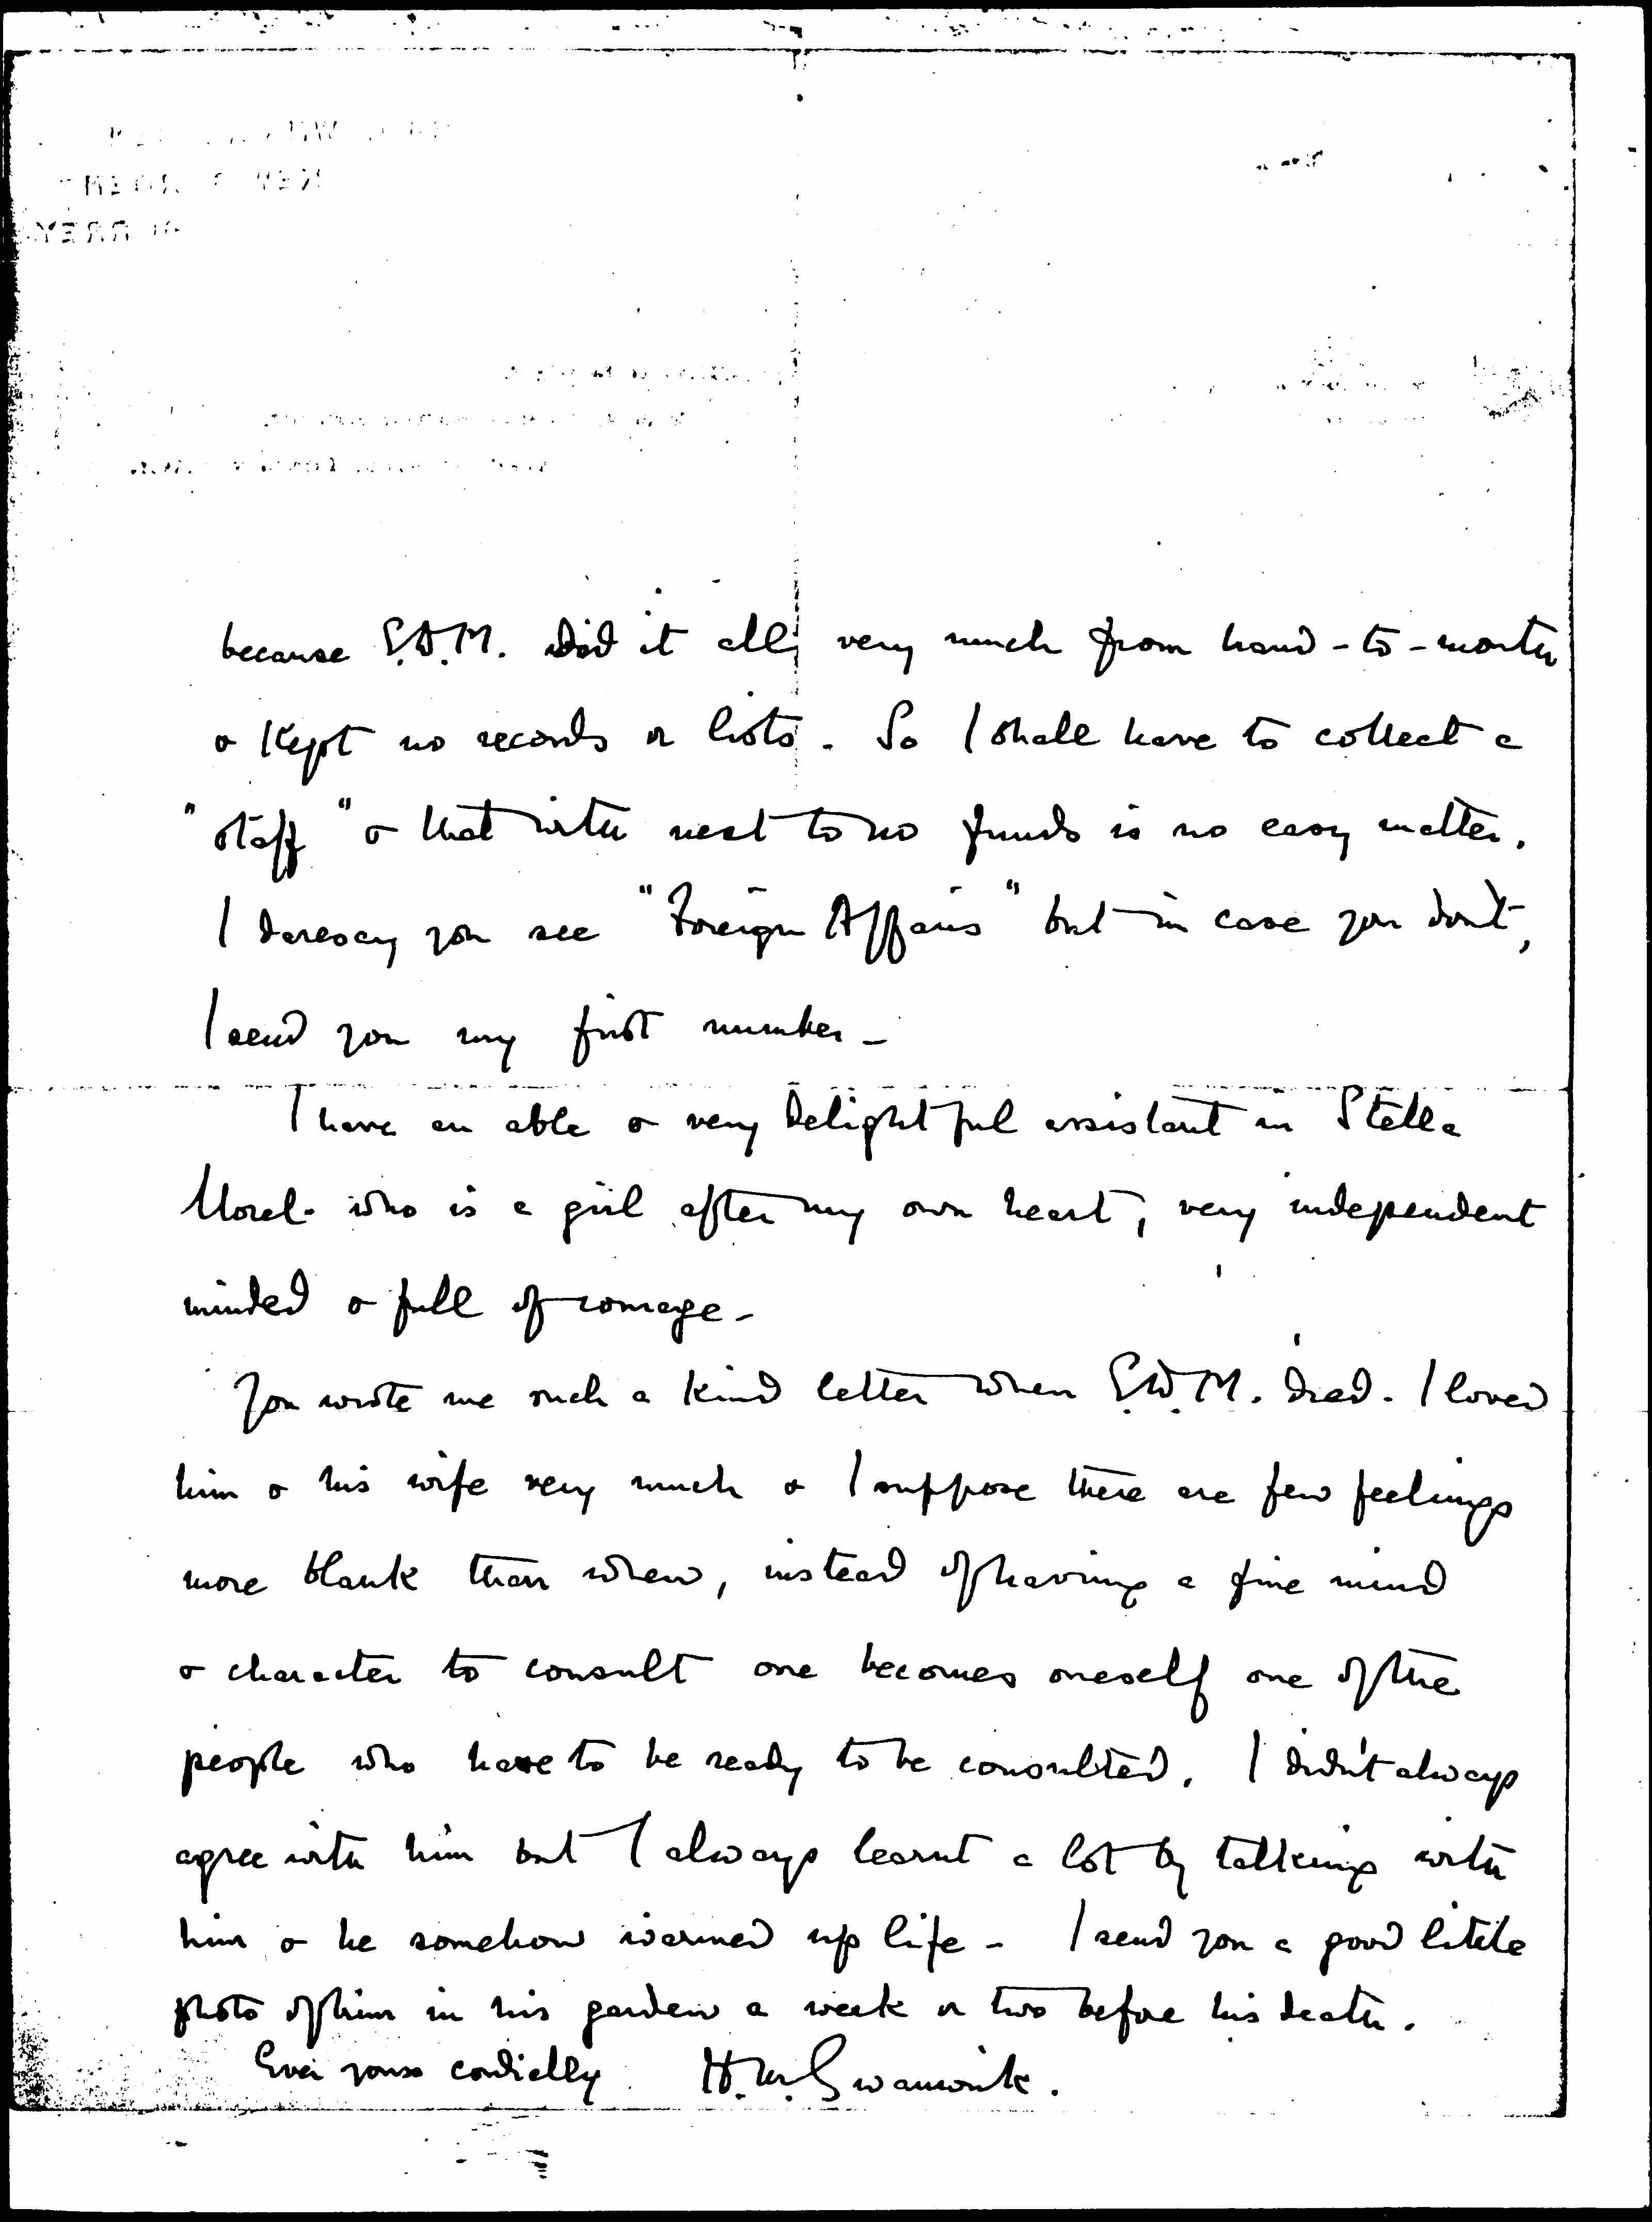 because E.D.M. did it all very much from hand-to-mouth
& kept no records or lists. So I shall have to collect a
"staff" & that with next to no funds is no easy matter.
I daresay you see "Foreign Affairs" but in case you don't,
I send you my first number -
I have an able & very delightful assistant in Stella
Morel - who is a girl after my own heart, very independent
minded & full of courage -
You wrote me such a kind letter when E.D.M. died. I loved
him & his wife very much & I suppose there are few feelings
more blank than when, instead of having a fine mind
& character to consult one becomes oneself one of the
people who have to be ready to be consulted. I didn't always
agree with him but I always learnt a lot by talking with
him & he somehow warmed up life - I send you a good little
photo of him in his garden a week or two before his death.
Ever yours cordially H.M. Swanwick.